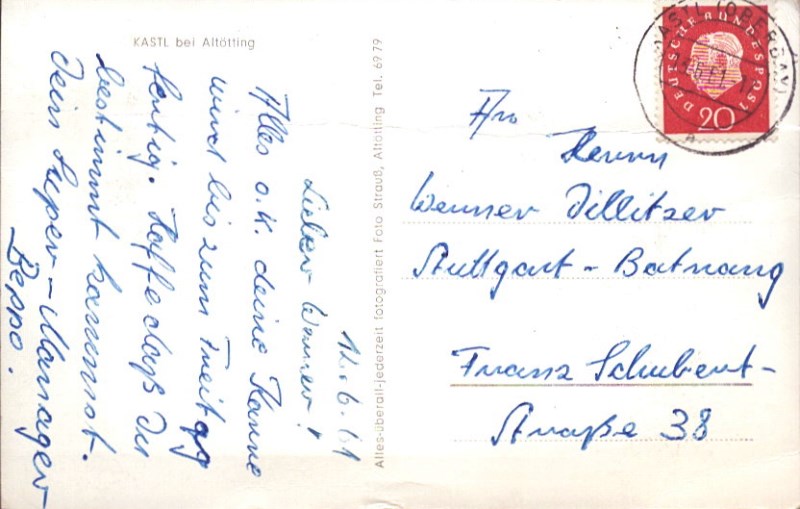 KASTL bei Altötting
12.6.61
Lieber Werner!
Alles o.K. deine Kanne
wird bis zum Freitag
fertig. Hoffe daß Du
bestimmt kommst.
Dein Super-Manager
Beppo.
Altes-überall-jederzeit fotografiert Foto Strauß, Altötting Tel. 6979
KASTL (OBERBAY)
DEUTSCHE BUNDESPOST
20
An
Herrn
Werner Dillitzer
Stuttgart-Batnang
Franz Schubert-
Straße 38